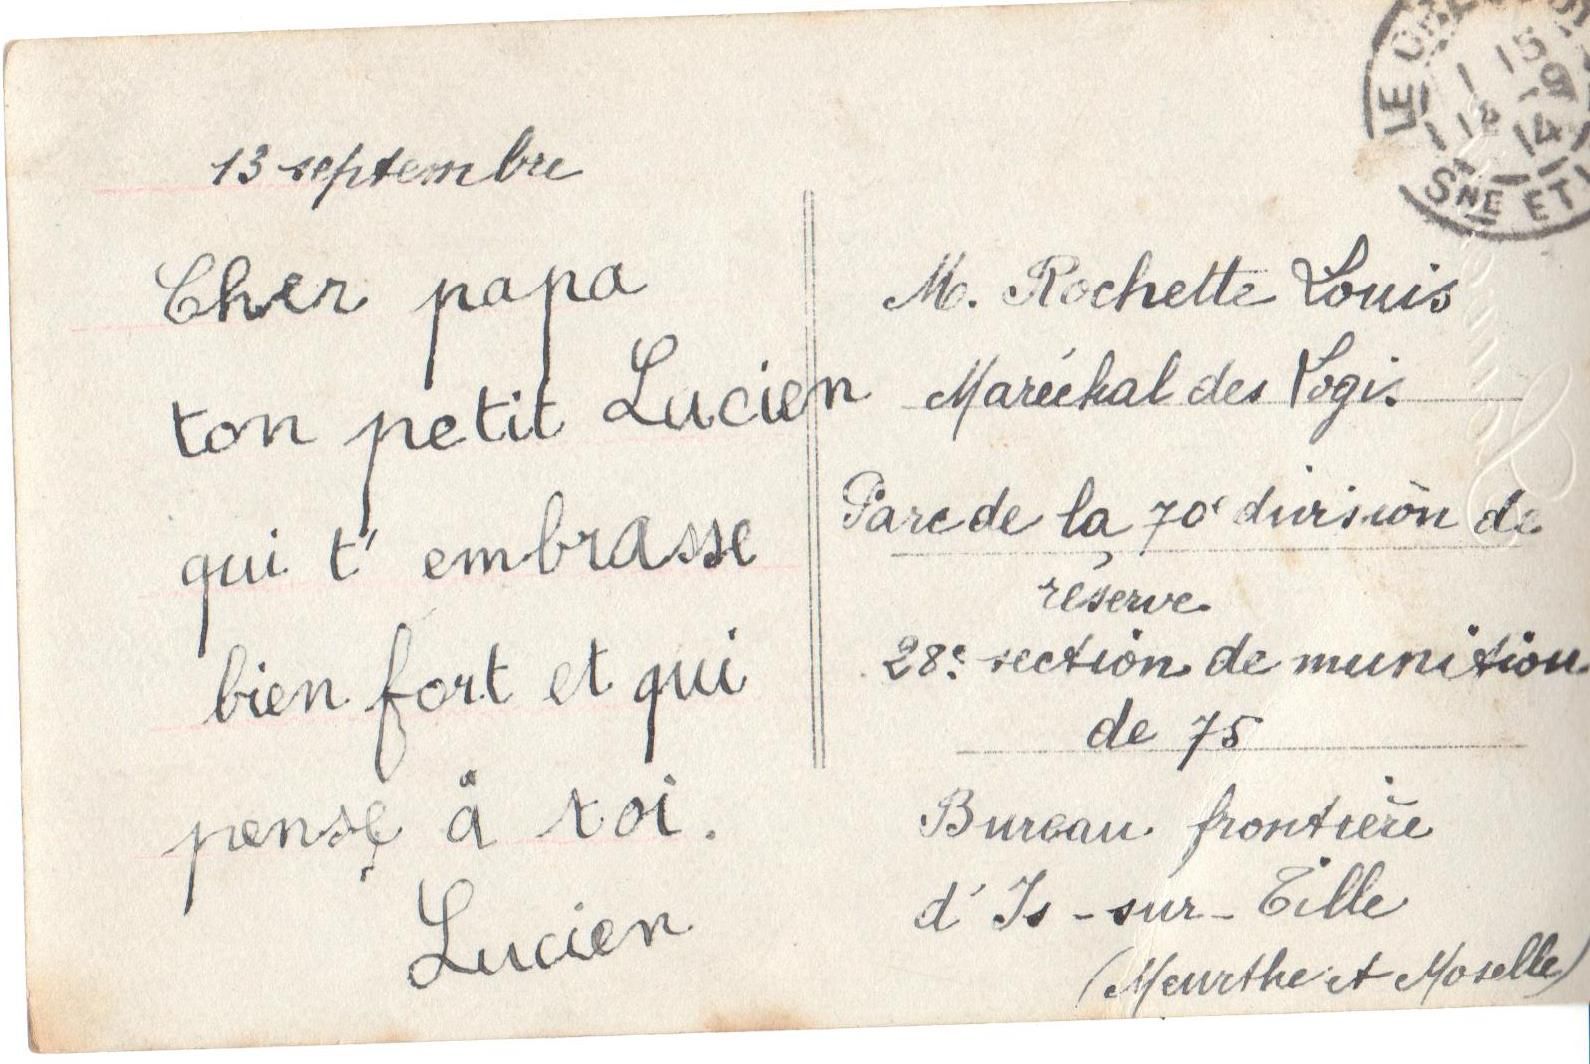 13 septembre
Cher papa
ton petit Lucien
qui t' embrasse
bien fort et qui
pense à toi.
Lucien
M. Rochette Louis
Maréchal des Logis
Parc de la 70e division de
réserve
28e section de munition
de 75
Bureau frontière
d' Is-sur-Tille
(Meurthe et Moselle)
LE
15 9
14
SNE ET